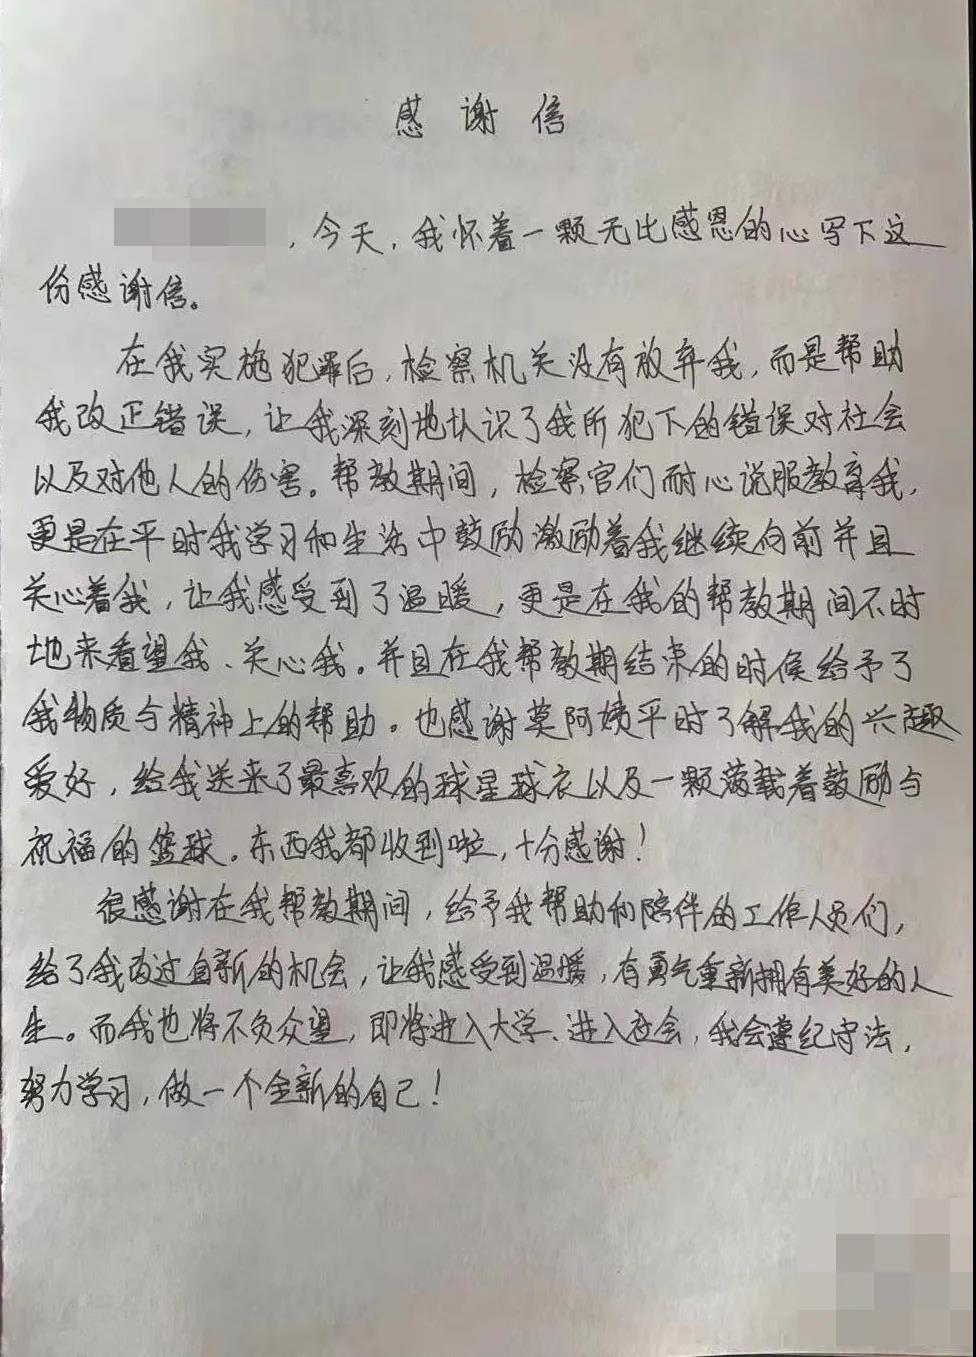 感谢信
，今天，我怀着一颗无比感恩的心写下这
份感谢信。
在我实施犯罪后，检察机关没有放弃我，而是帮助
我改正错误，让我深刻地认识了我所犯下的错误对社会
以及对他人的伤害。帮教期间，检察官们耐心说服教育我，
更是在平时我学习和生活中鼓励激励着我继续向前并且
关心着我，让我感受到了温暖，更是在我的帮教期间不时
地来看望我、关心我。并且在我帮教期结束的时候给予了
我物质与精神上的帮助。也感谢莫阿姨平时了解我的兴趣
爱好，给我送来了最喜欢的球星球衣以及一颗满载着鼓励与
祝福的篮球。东西我都收到啦，十分感谢！
很感谢在我帮教期间，给予我帮助和陪伴的工作人员们，
给了我改过自新的机会，让我感受到温暖，有勇气重新拥有美好的人
生。而我也将不负众望，即将进入大学、进入社会，我会遵纪守法，
努力学习，做一个全新的自己！